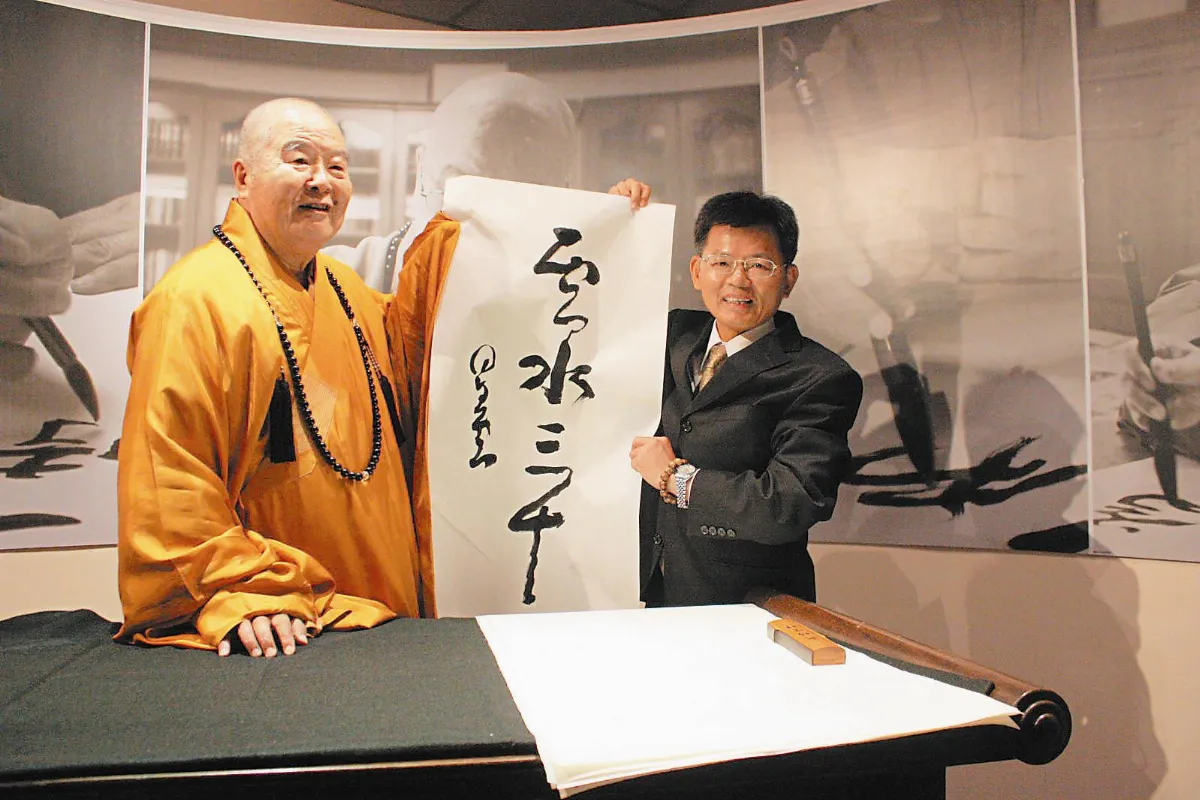 雲水三千
星雲